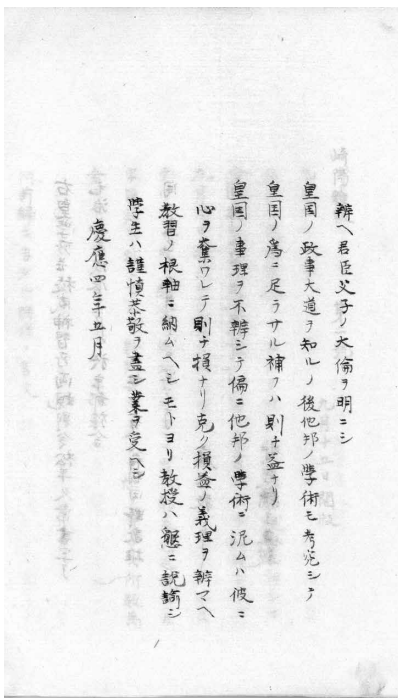 辨ヘ君臣父子ノ大倫ヲ明ニシ
皇国ノ政事大道ヲ知ルノ後他邦ノ學術モ考究シテ
皇国ノ為ニ足ラサル補フハ則チ益ナリ
皇国ノ事理ヲ不辨シテ偏ニ他邦ノ學術ニ泥ムハ彼ニ
心ヲ奪ワレテ則チ損ナリ克ク損益ノ義理ヲ辨マヘ
教習ノ根軸ニ納ムヘシモトヨリ教授ハ懇ニ説諭シ
學生ハ謹慎恭敬ヲ盡シ業ヲ受ヘシ
慶應四年五月